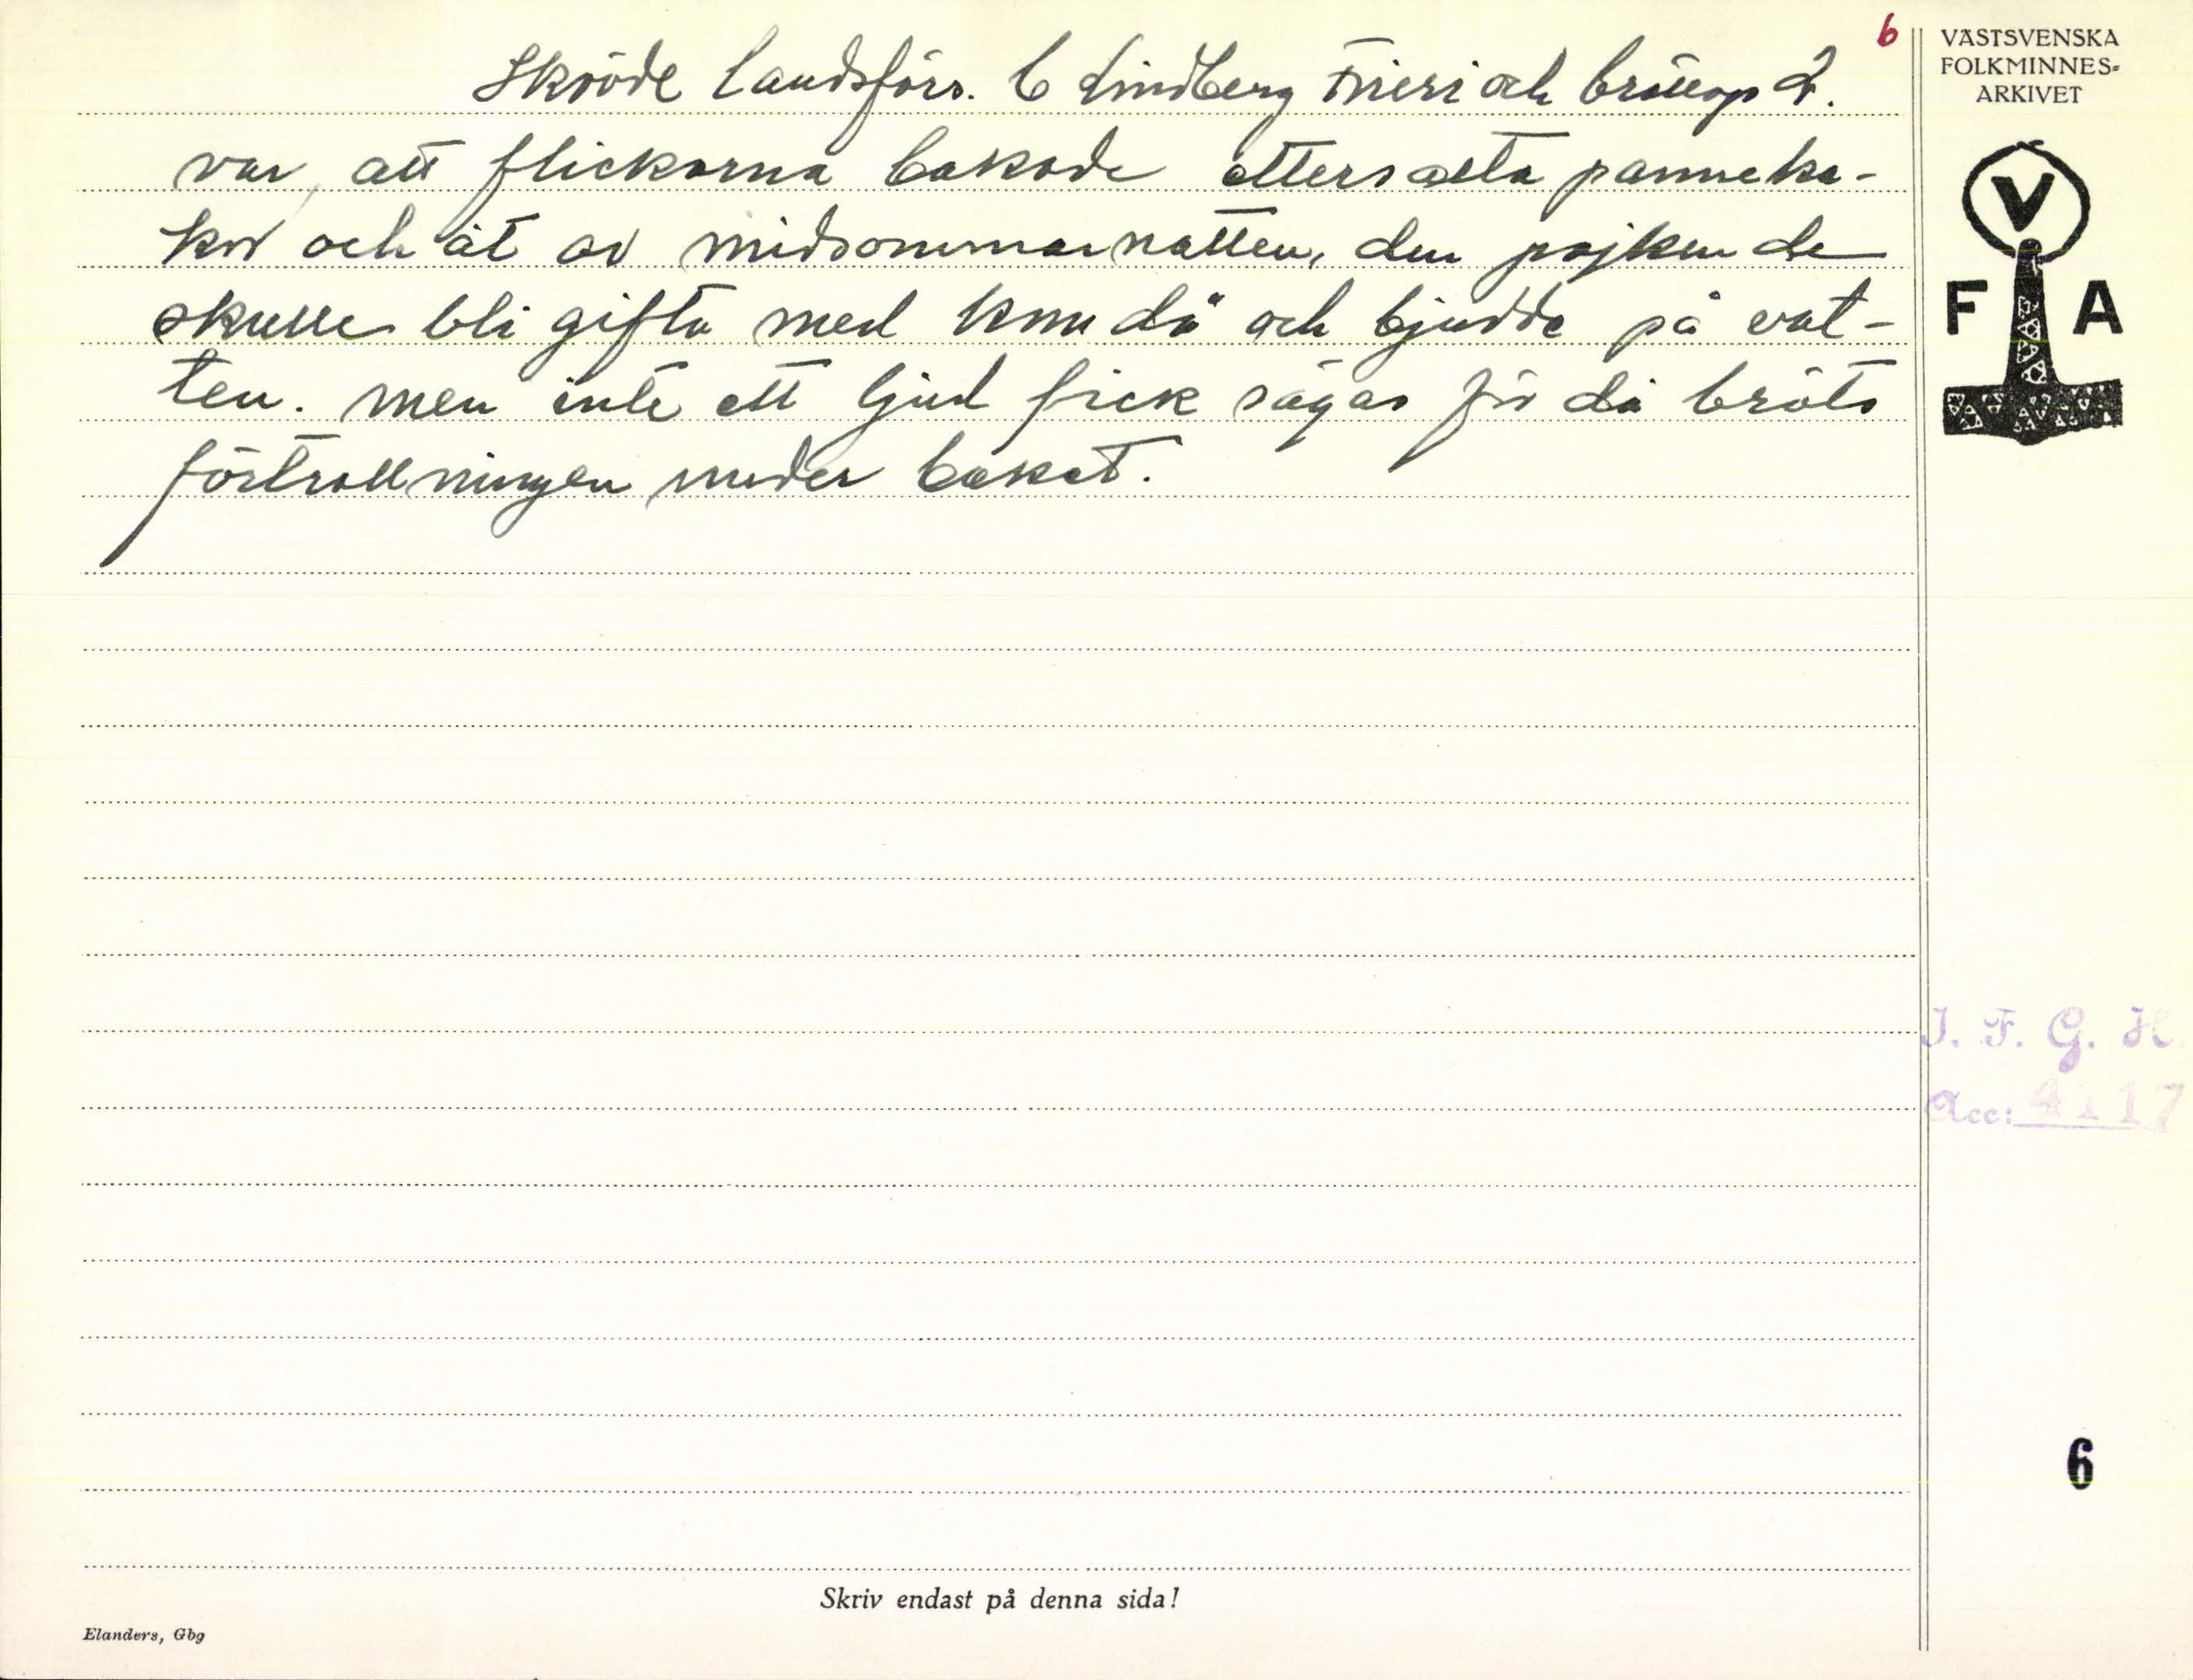 6
Skövde landsförs. C Lindberg Frieri och bröllop 2.
var, att flickorna bakade ettersalta panneka-
kor och åt av midsommarnatten, den pojken de
skulle bli gifta med kom då och bjudde på vat-
ten. men inte ett ljud fick sägas för då bröts
förtrollningen under baket.
VÄSTSVENSKA
FOLKMINNES-
ARKIVET
V
F A
I. F. G. H
Acc: 4117
6
Skriv endast på denna sida!
Elanders, Gbg